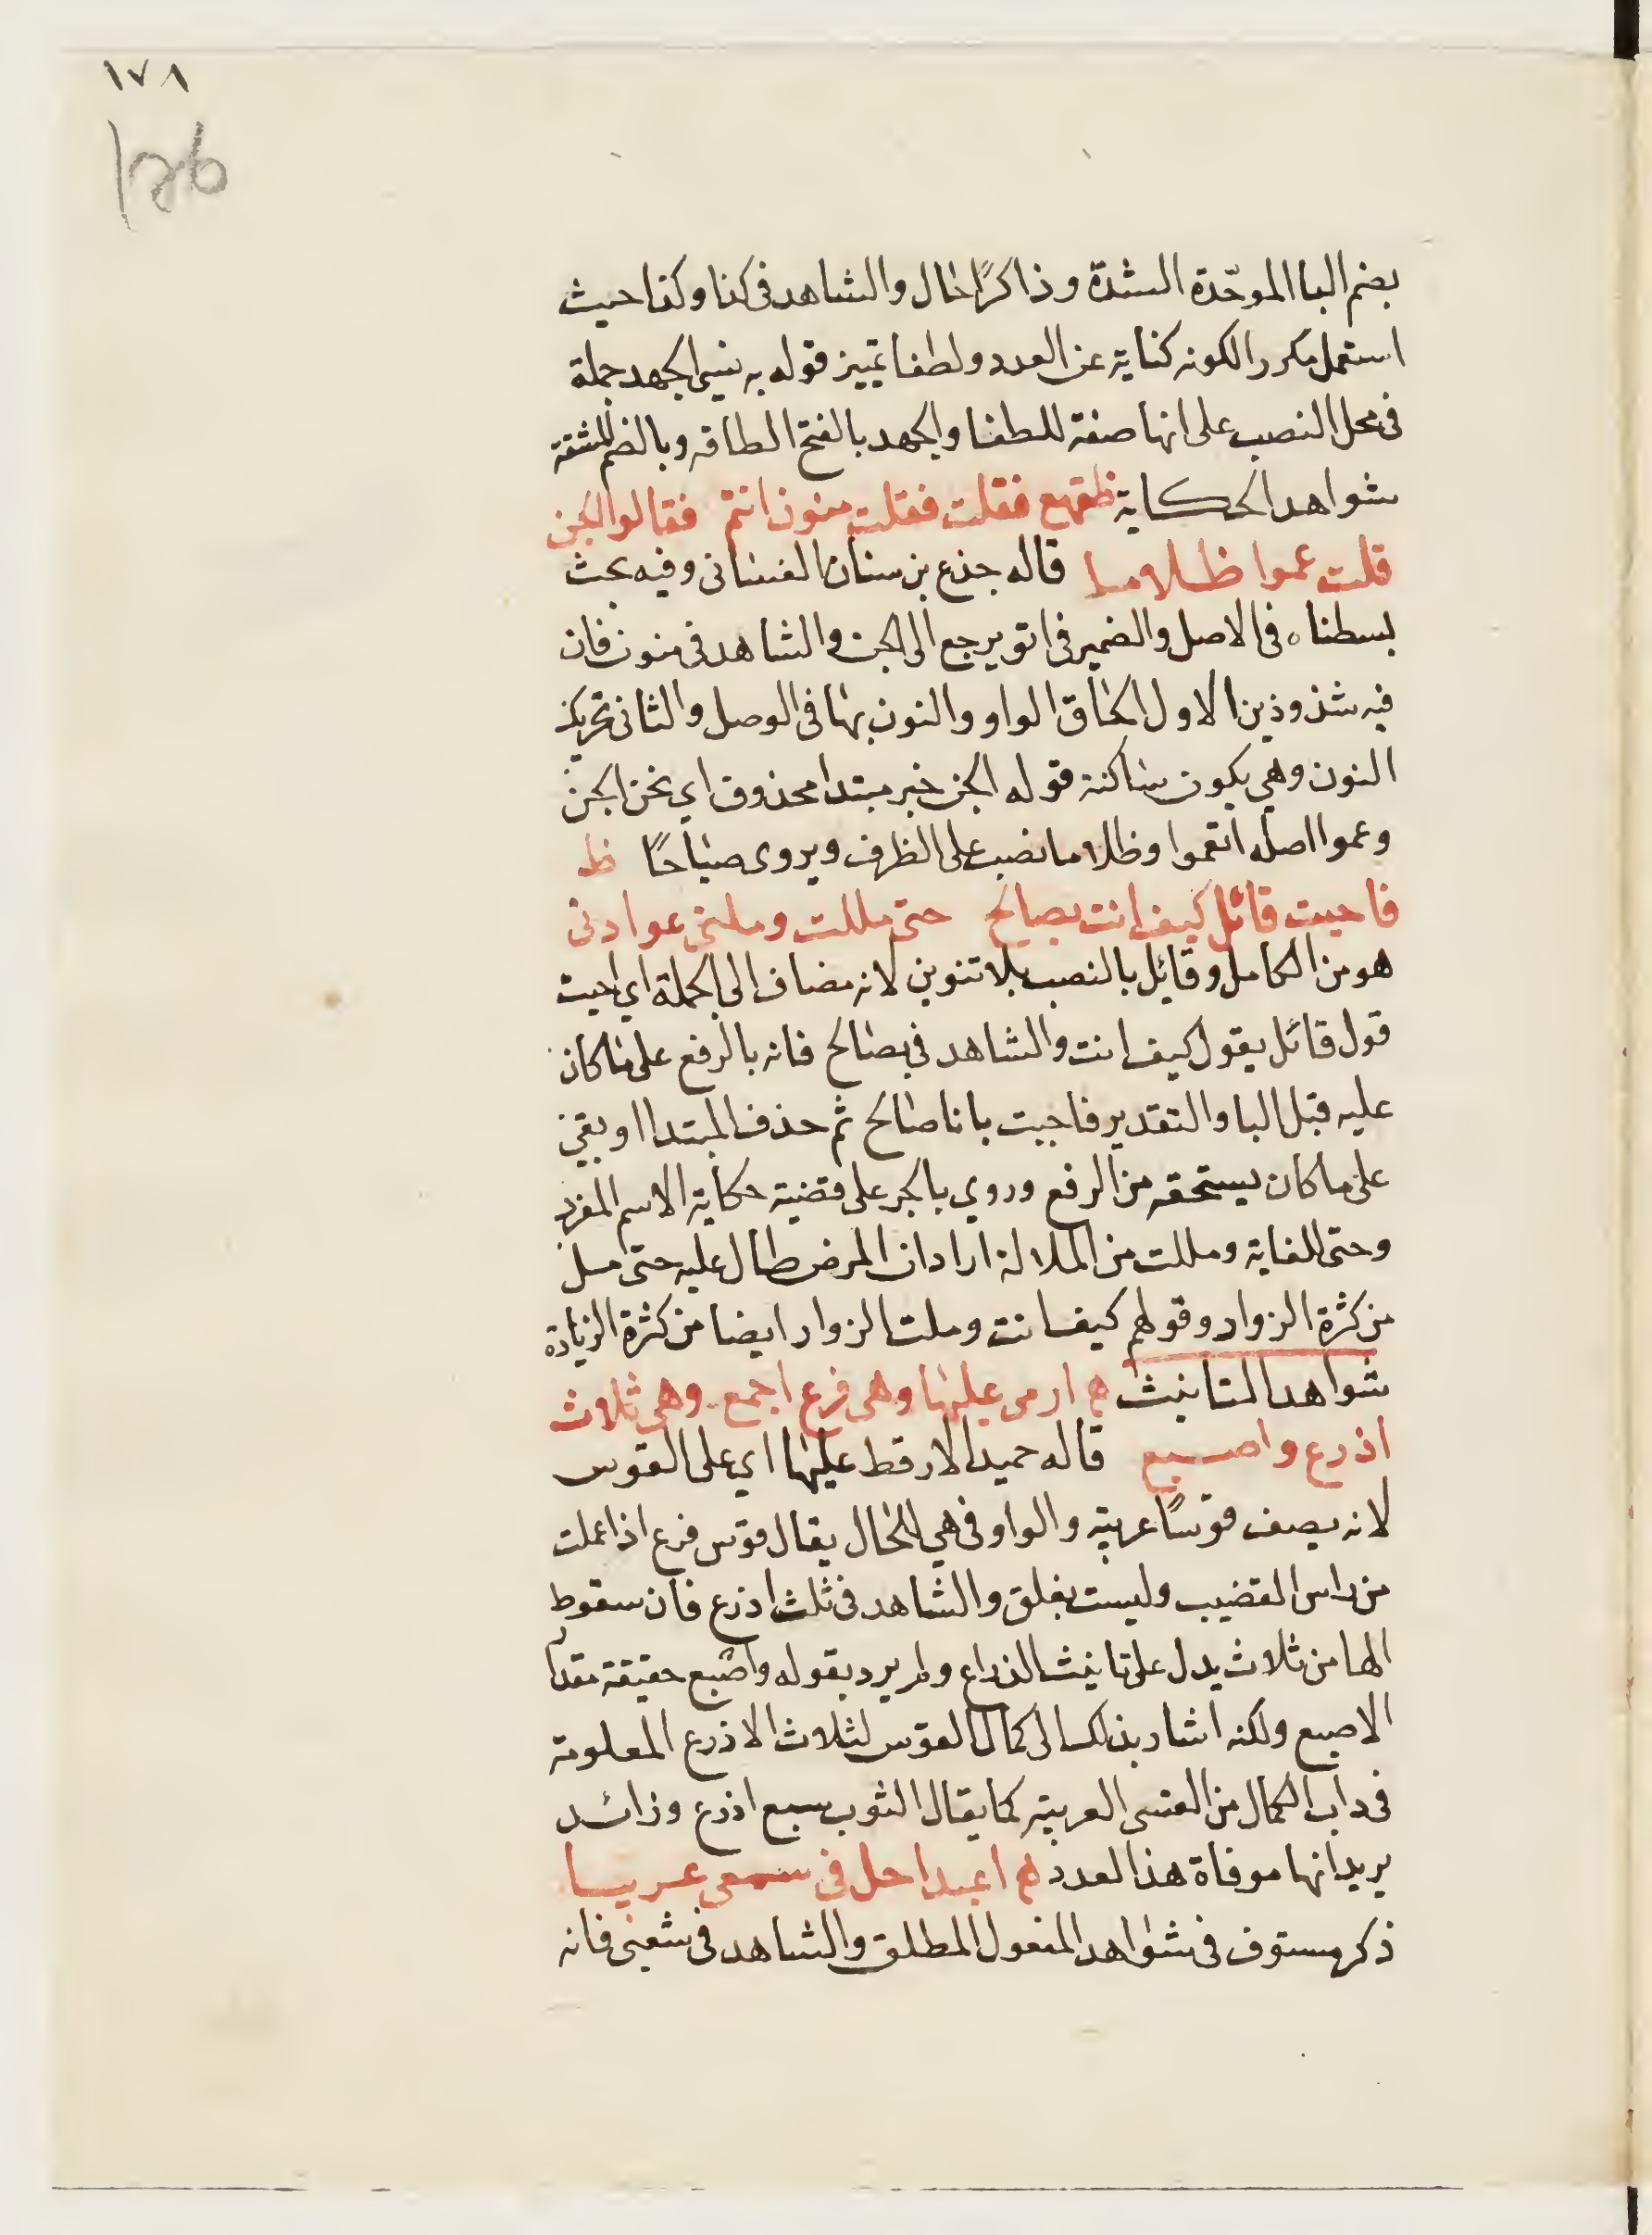 ١٧٨
176
بضم الباا الموحّدة الشدّة وذاكرًا حال والشاهد فى كذا وكذا حيث
استعمل مكررا لكونه كناية عن العدد ولطفا تمييز قوله به نسى الجهد جملة
فى محل النصب على انها صفة للطفا والجهد بالفتح الطاقه وبالضم المشقة
شواهد الحكاية ظقهع فقلت فقلت منون انتم فقالوا الجن
قلت عموا ظلاما قاله جذع بن سنان الغسانى وفيه بحث
بسطناه فى الاصل والضمير فى اتو يرجع الى الجن والشاهد فى منون فان
فيه شذوذين الاول الحاق الواو والنون بها فى الوصل والثانى تحريك
النون وهي يكون ساكنة قوله الجن خبر مبتدا محذوف اي نحن الجن
وعموا اصله انعموا وظلاما نصب على الظرف ويروى صباحًا ظـ
فاجبت قائل كيف انت بصالح حتى مللت وملنى عوادنى
هو من الكامل وقائل بالنصب بلا تنوين لانه مضاف الى الجملة اي اجبت
قول قائل يقول كيف انت والشاهد فى بصالح فانه بالرفع على ما كان
عليه قبل البا والتقدير فاجبت بانا صالح ثم حذف المبتداا وبقي
على ما كان يستحقه من الرفع وروي بالجر على قضية حكاية الاسم المفرد
وحتى للغاية ومللت من الملالة اراد ان المرض طال عليه حتى مل
من كثرة الزوار وقولهم كيف انت وملت الزوار ايضا من كثرة الزيادة
شواهد التانيث هم ارمى عليها وهى فرع اجمع وهى ثلاث
اذرع واصبع قاله حميد الارقط عليها اي على القوس
لانه يصف قوسًا عربية والواو فى هي للحال يقال قوس فرع اذا عملت
من راس القضيب وليست بفلق والشاهد فى ثلث اذرع فان سقوط
الها من ثلاث يدل على تانيث الذراع ولم يرد بقوله واصبع حقيقة مقدار
الاصبع ولكنه اشار بذلك الى كمال القوس لثلاث الاذرع المعلومة
فى داب الكمال من القسى العربية كما يقال الثوب سبع اذرع وزائد
يريد انها موفاة هذا العدد هم اعبدا حل فى سمعى عريبا
ذكر مستوف فى شواهد المفعول المطلق والشاهد فى شعبى فانه